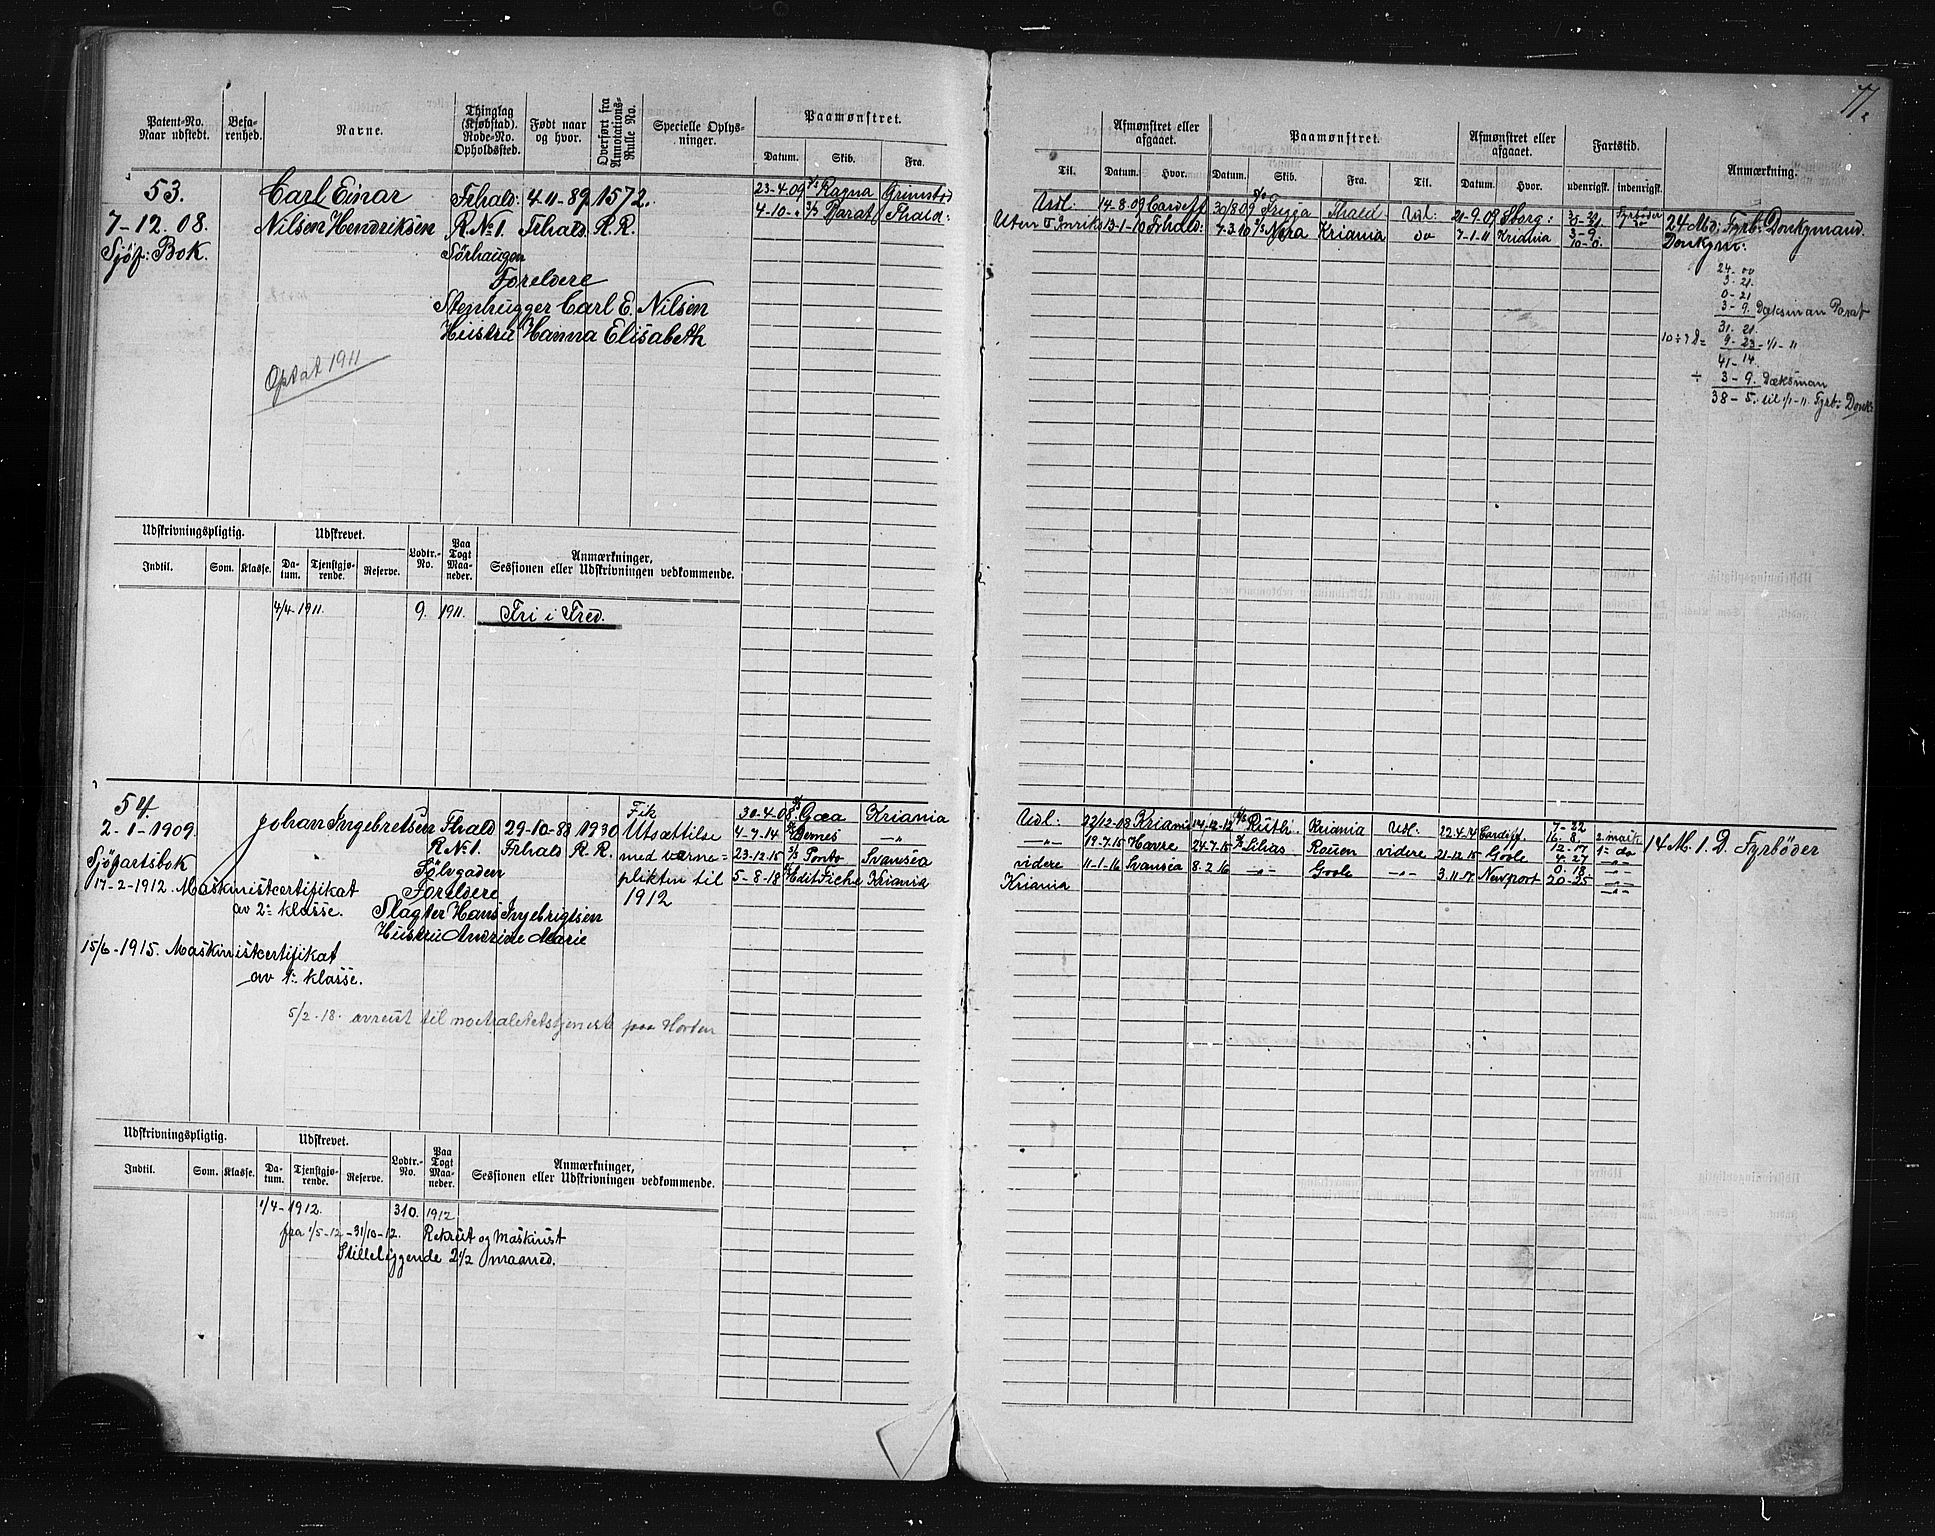 77.
Patent-No. Naar udstedt.
Befa-renhed.
Navne.
Thinglag (Kjøbstad). Rode-No. Opholdssted.
Født naar og hvor.
Overført fra Annotations-Rulle No.
Specielle Oplys-ninger.
Paamønstret.
Datum. Skib. Fra.
Afmønstret eller afgaaet.
Paamønstret.
Afmønstret eller afgaaet.
Fartstid.
Anmærkning.
Til. Datum. Hvor. Datum. Skib. Fra. Til. Datum. Hvor. udenrigsk. indenrigsk.
53. Carl Einar Frhald: 4-11-89 1572. 23-4-09 Ragna Grimstad
7-12.08. Nilsen Hendriksen R.No1. Frhald. R.R. 4-10- " Parat Fhald:
Sjöf: Bok. Sörhaugen
Foreldre
Stenhugger Carl E. Nilsen
Hustru Hanna Elisabeth
Optat 1911
Udl: 14-8.09 Cardiff 30/8 09 Frigga Fhald Udl: 21-9.09 Sborg: 3-21
13-1-10 Frhald: 7-3.10 Nora Kriania do 7-1.11 Kriania 3-9
10-0.
24 Md: Fyrb: Donkymand.
Donkym:
24.00
3-21.
0-21
3-9. Dæksman Parat
31. 21.
9-23 - 1/1-11
41-14.
÷ 3-9. Dæksman
38-5. til 1/1-11. Fyrb: Donk:
Udskrivningspligtig. Udskrevet. Lodtr.-No. Paa Togt Maa-neder. Anmærkninger, Sessionen eller Udskrivningen vedkommende.
Indtil. Som. Klasse. Da-tum. Tjenstgjø-rende. Reserve.
4/4-1911. 9. 1911. Fri i Fred.
54. Johan Ingebretsen Fhald 29-10-88 1930 Fik 30-4-08. Gæa Kriania
2-1-1909. R.No1. Frhald R.R. Utsættilse 4-7-14 -"-
Sjöfartsbok Sölvgaden med værne= 23-12-15 Ponto Svansea
17-2-1912. Maskinistcertifikat Foreldre plikten til 5-8-18 Kriania
av 2= klasse. Slagter Hans Ingebrigtsen 1912
Hustru Andrine Marie
15/6-1915. Maskinistcertifikat
av 1= klasse.
5/2-18. avreist til noitralitetstjeneste paa Horten
Udl: 22/12-08 Kriania 14-12-12 Ruth: Kriania Udl: 22.4.14 Cardiff 7-22
-"- 19-7-15 Havre 24-7.15 Lilias Rouen videre 21-12.15 Goole
videre 11-1-16 Svansea 8-2.16 -"- Goole -"- 3.11.17. Newport 20-25
Kriania
14 M. 1. D. Fyrböder
Udskrivningspligtig. Udskrevet. Lodtr.-No. Paa Togt Maa-neder. Anmærkninger, Sessionen eller Udskrivningen vedkommende.
Indtil. Som. Klasse. Da-tum. Tjenstgjø-rende. Reserve.
1/4-1912. 310. 1912
fra 1/5-12 - 31/10-12. Rekrut og maskinist
Stilleliggende 2 1/2 maaned.